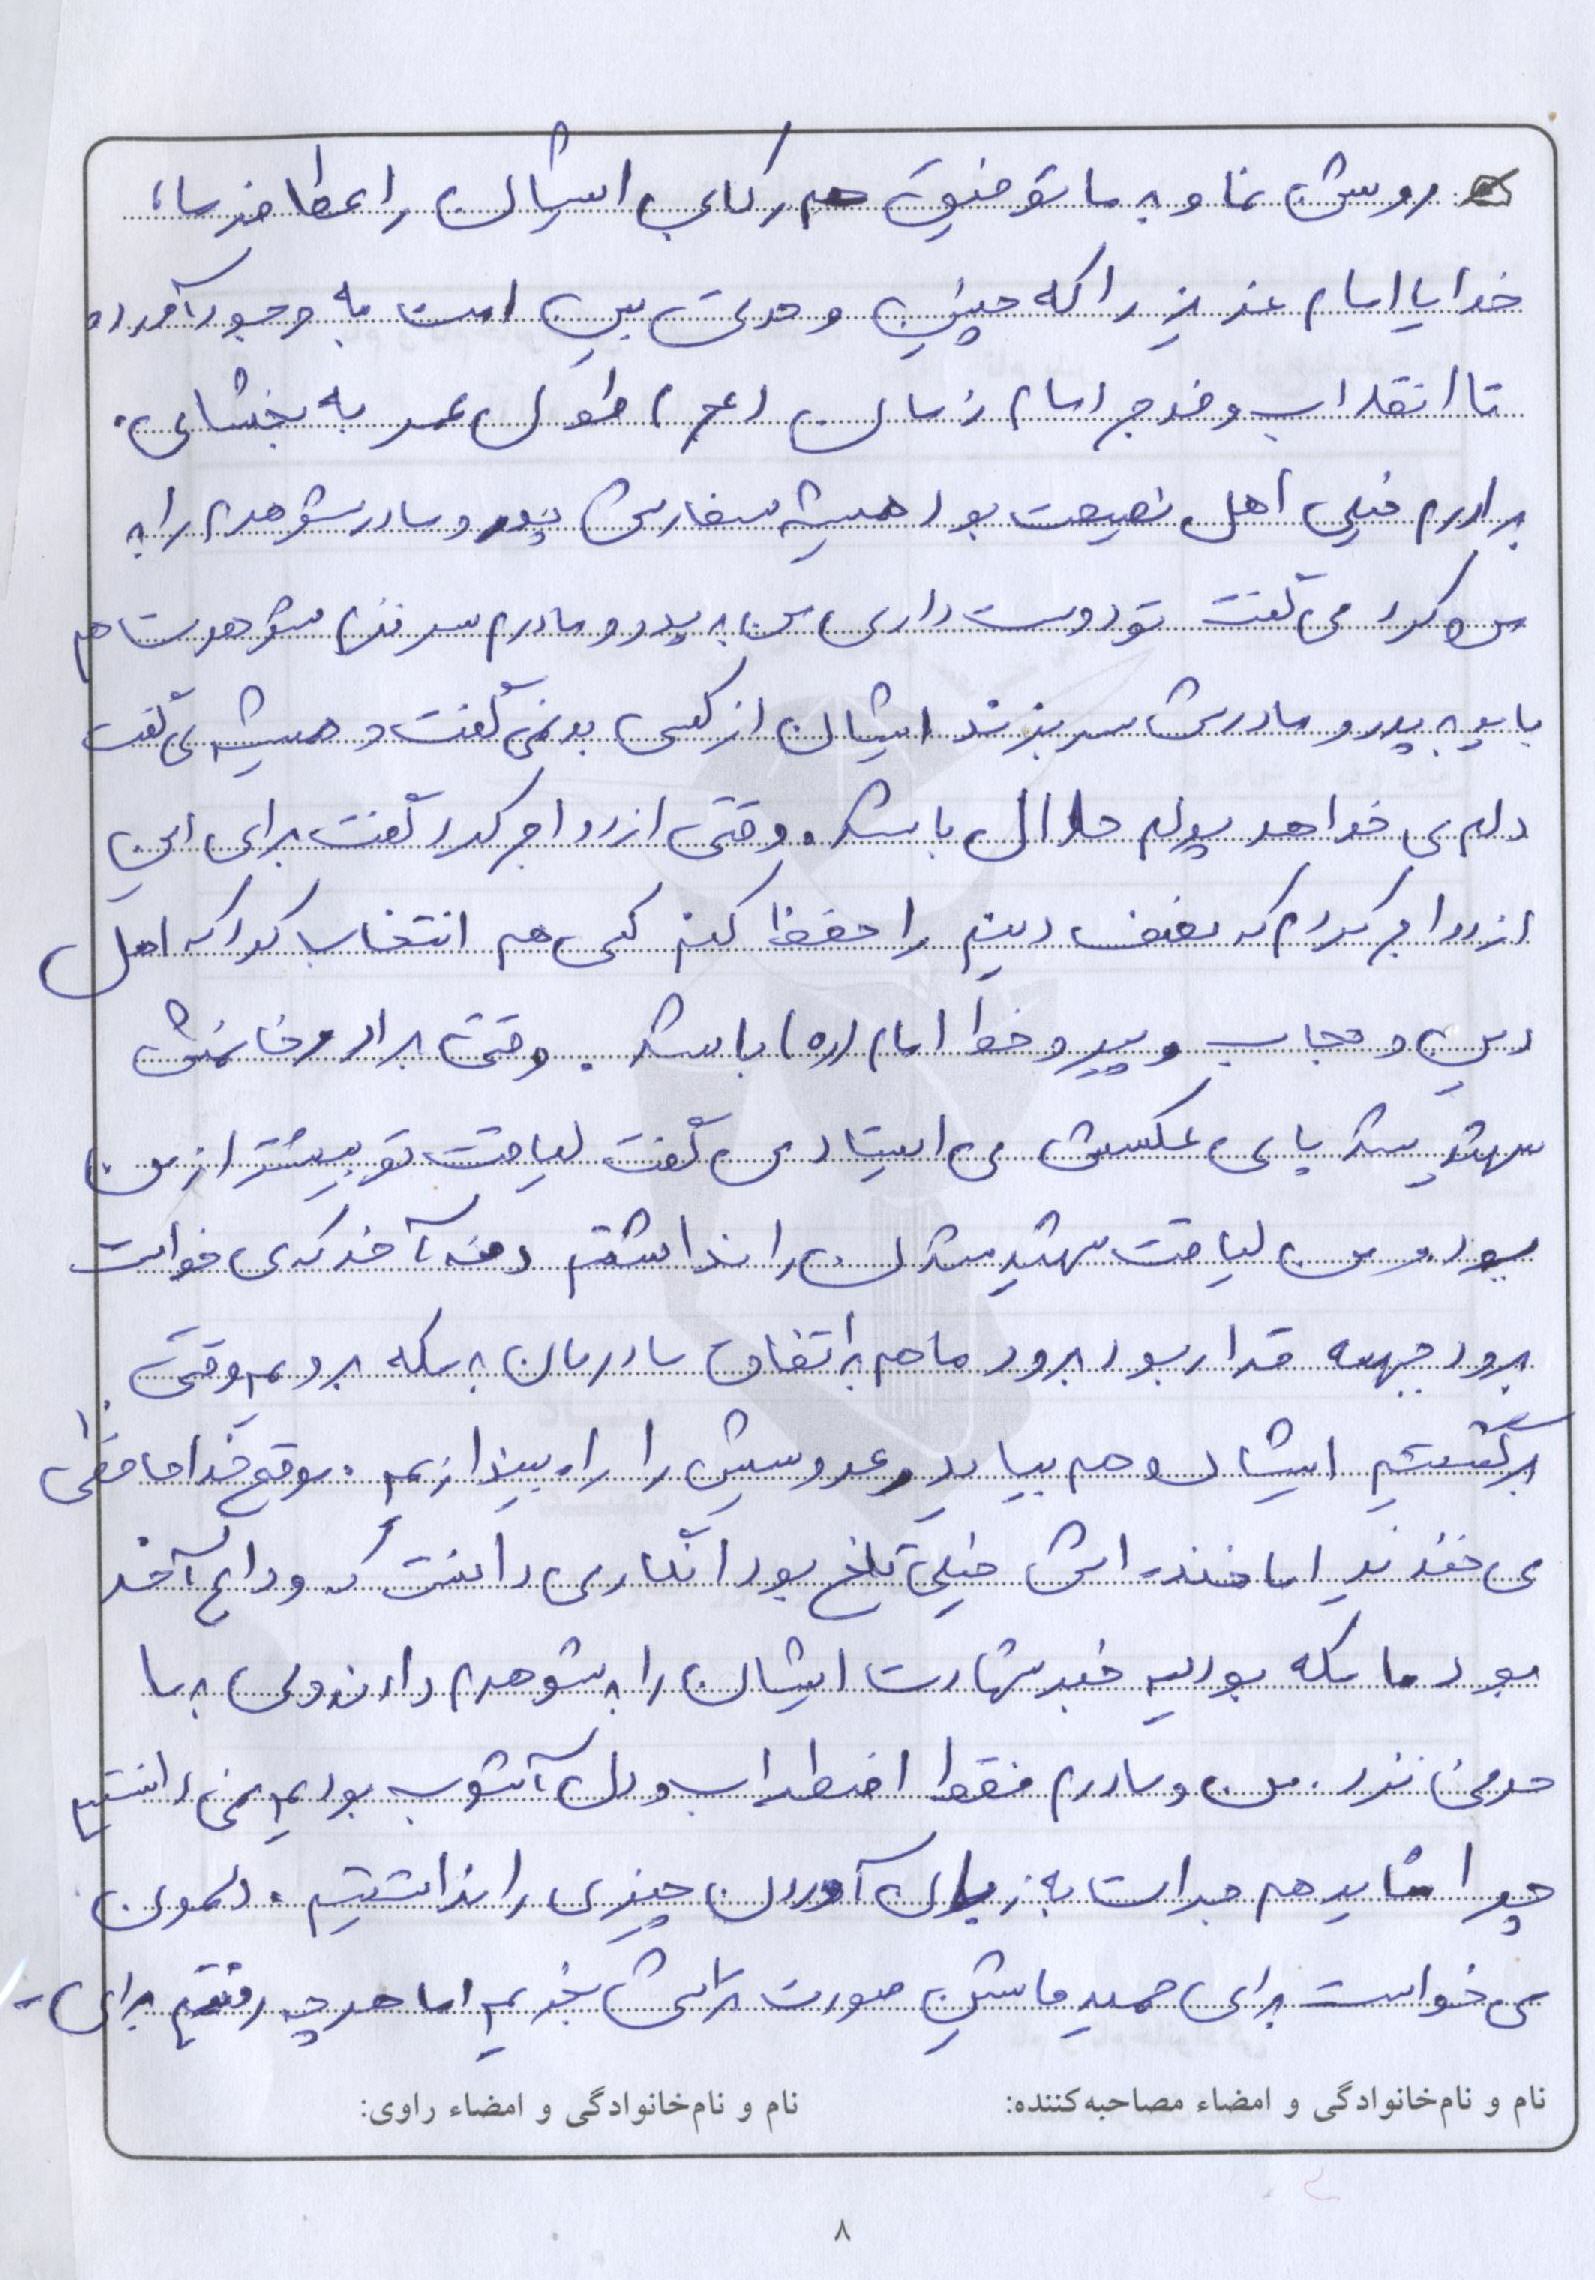 روشن نما و به ما توفیق هم رکابی ایشان را عطا فرما،
خدایا امام عزیز را که چنین وحدتی بین امت به وجود آورده
تا انقلاب و فرج امام زمان (عج) طول عمر به بخشای.
برادرم خیلی اهل نصیحت بود همیشه سفارش پدر و مادر شوهرم را به
من کرد می گفت تو دوست داری من به پدر و مادرم سر نزنم شوهرت هم
باید به پدر و مادرش سر بزند ایشان از کسی بد نمی گفت و همیشه می گفت
دلم می خواهد پولم حلال باشد. وقتی ازدواج کرد گفت برای این
ازدواج کردم که نصف دینم را حفظ کنم کسی هم انتخاب کرد که اهل
دین و حجاب و پیرو خط امام (ره) باشد. وقتی برادر خانمش
شهید شد پای عکسش می ایستاد می گفت لیاقت تو بیشتر از من
بود و من لیاقت شهید شدن را نداشتم دفعه آخر که می خواست
برود جبهه قرار بود برود ما هم به اتفاق مادرمان به مکه برویم وقتی
برگشتیم ایشان هم بیاید و عروسیش را راه بیندازیم. موقع خداحافظی
می خندید اما خنده اش خیلی تلخ بود انگاری دانست که وداع آخر
بود ما مکه بودیم خبر شهادت ایشان را به شوهرم دادند ولی به ما
حرفی نزد. من و مادرم فقط اضطراب و دل آشوب بودیم نمی دانستیم
چرا شاید هم جرات به زبان آوردن چیزی را نداشتیم. دلمون
می خواست برای حمید ماشین صورت تراشی بخریم اما هر چه رفتیم برای -
نام و نام‌خانوادگی و امضاء مصاحبه‌کننده: نام و نام‌خانوادگی و امضاء راوی:
۸